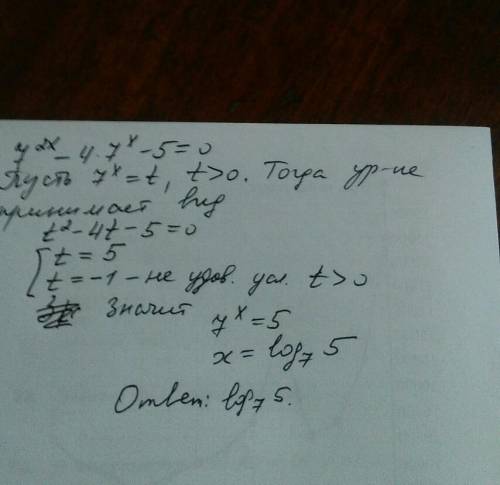 7^2x - 4·7^x - 5 = 0
Пусть 7^x = t, t > 0. Тогда ур-ие
принимает вид
t² - 4t - 5 = 0
[ t = 5
t = -1 - не удов. усл. t > 0
Значит 7^x = 5
x = log₇ 5
Ответ: log₇ 5.